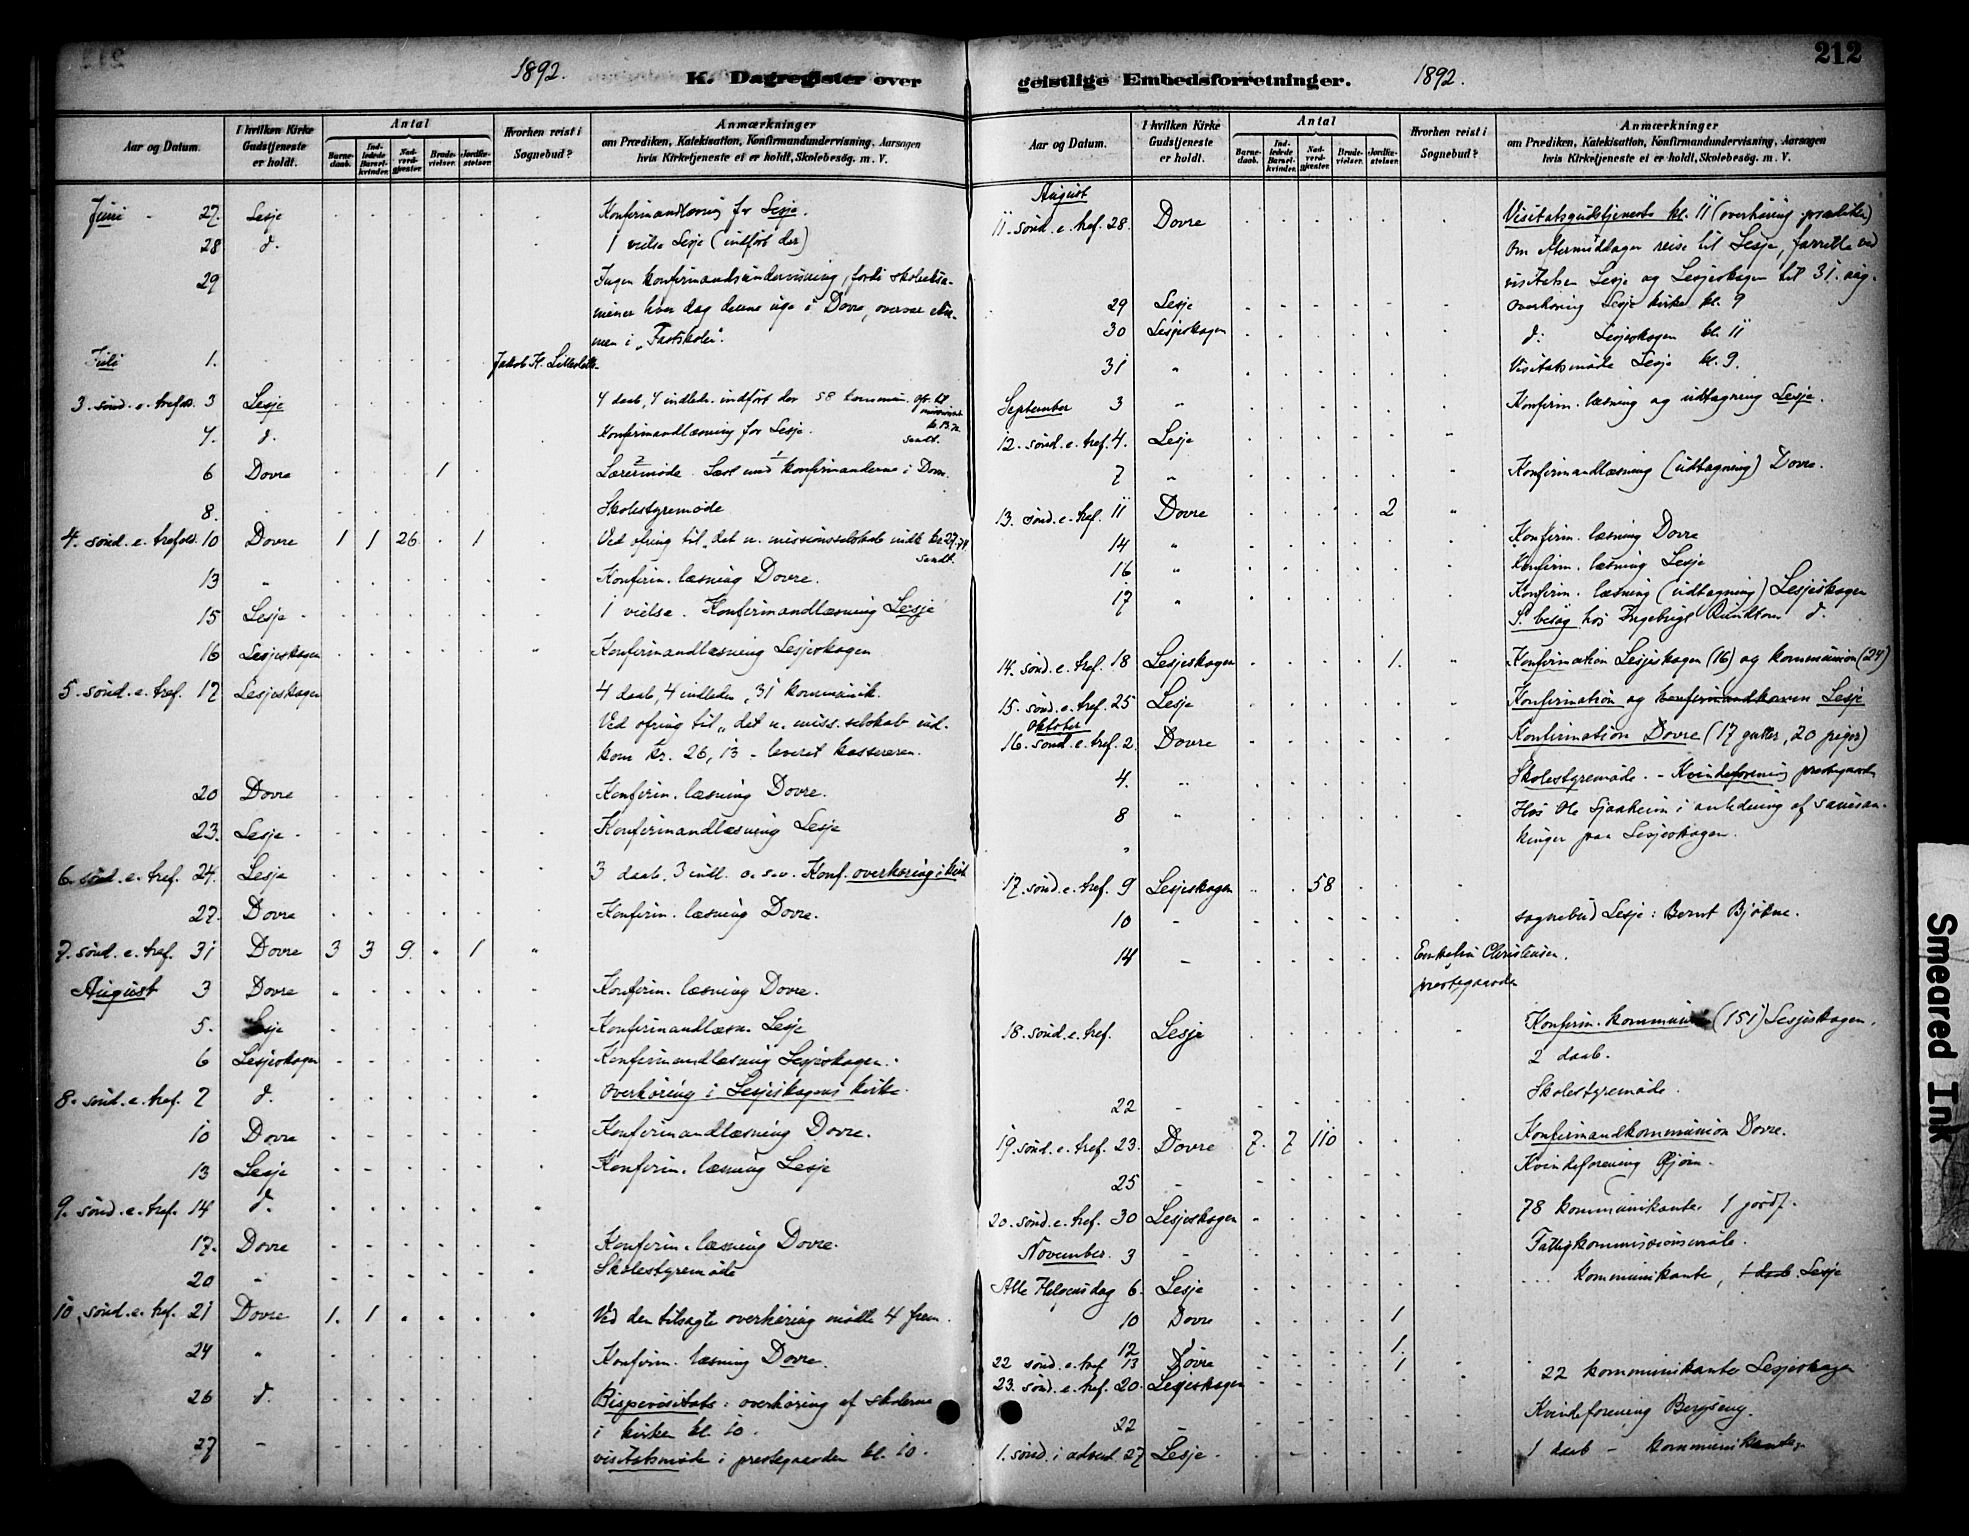 212
1892. K. Dagregister over
Aar og Datum. I hvilken Kirke Gudstjeneste er holdt. Antal Barnedaab. Indledede Barselkvinder. Nadverdgjester. Brudevielser. Jordfæstelser. Hvorhen reist i Sognebud? Anmærkninger om Prædiken, Katekisation, Konfirmandundervisning, Aarsagen hvis Kirketjeneste ei er holdt, Skolebesøg. m. V.
Juni - 27. Lesje Konfirmandlæsning for Lesje.
28 d. 1 vielse Lesje (indført der)
29 Ingen konfirmandundervisning, fordi skoleeksa-
miner hver dag denne uge i Dovre, overvar
men i "Fastskolen".
Juli 1. Jakob K.
3. sønd. e. trefol. 3 Lesje 4 daab, 4 indled. indført der 58 kommun.
4. d. Konfirmandlæsning for Lesje. sendt.
6 Dovre 1 Lærermøde. Læst med konfirmanderne i Dovre.
8. Skolestyremøde
4. sønd. e. trefol. 10 Dovre 1 1 26 1 Ved ofring til "det n. missionsselskab indk. kr. 27.71 sendt.
13 " Konfirm. læsning Dovre.
15 Lesje 1 vielse. Konfirmandlæsning Lesje
16 Lesjeskogen " Konfirmandlæsning Lesjeskogen
5. sønd. e. tref. 17 Lesjeskogen 4 daab, 4 indleden, 31 kommunik.
Ved ofring til "det n. miss. selskab ind-
kom kr. 26,13 - leveret kassereren.
20 Dovre Konfirm. læsning Dovre.
23. Lesje Konfirmandlæsning Lesje
6. sønd. e. tref. 24. Lesje 3 daab, 3 indl. o. s. v. Konf. overhøring i kirk
27. Dovre Konfirm. læsning Dovre.
7. sønd. e. tref. 31 Dovre 3 3 9 1 "
August 3 Dovre Konfirm. læsning Dovre.
5. Lesje Konfirmandlæsn. Lesje
6 Lesjeskogen Konfirmandlæsning Lesjeskogen.
8. sønd. e. tref. 7 d. Overhøring i Lesjeskogens kirke.
10 Dovre Konfirmandlæsning Dovre.
13 Lesje Konfirm. læsning Lesje
9. sønd. e. tref. 14 d.
17. Dovre Konfirm. læsning Dovre.
20 " Skolestyremøde
10. sønd. e. tref. 21 Dovre 1. 1 Ved den tilsagte overhøring mødte 4 frem.
24 " Konfirm. læsning Dovre.
26 d. Bispevisitats: overhøring af skolerne
i kirken kl. 10.
27 - visitatsmøde i prestegaarden kl. 10.
geistlige Embedsforretninger. 1892.
Aar og Datum. I hvilken Kirke Gudstjeneste er holdt. Antal Barnedaab. Indledede Barselkvinder. Nadverdgjester. Brudevielser. Jordfæstelser. Hvorhen reist i Sognebud? Anmærkninger om Prædiken, Katekisation, Konfirmandundervisning, Aarsagen hvis Kirketjeneste ei er holdt, Skolebesøg. m. V.
August
11. sønd. e. tref. 28. Dovre Visitatsgudstjeneste kl. 11 (overhøring prædiken)
Om eftermiddagen reise til Lesje, forrette ved
visitatsen Lesje og Lesjeskogen til 31. aug.
29 Lesje Overhøring Lesje kirke kl. 9
30 Lesjeskogen d. Lesjeskogen kl. 11
31 " Visitatsmøde Lesje kl. 9.
September 3 " Konfirm. læsning og udtagning Lesje.
12. sønd. e. tref. 4. Lesje "
7 " Konfirmandlæsning (udtagning) Dovre.
13. sønd. e. tref. 11 Dovre 2 "
14 " Konfirm. læsning Dovre
16 " Konfirm. læsning Lesje
17 " Konfirm. læsning (udtagning) Lesjeskogen
S. besøg hos Ingebrigt d.
14. sønd. e. tref. 18 Lesjeskogen 1. " Konfirmation Lesjeskogen (16) og kommunion (24)
15. sønd. e. tref. 25 Lesje Konfirmation og Lesje
Oktober
16. sønd. e. tref. 2. Dovre Konfirmation Dovre (17 gutter, 20 piger)
4. " Skolestyremøde. - Kvindeforening prestegaarden
8 " Hos Ole Sjaaheim i anledning af
paa Lesjeskogen.
17. sønd. e. tref. 9 Lesjeskogen 58
10 - sognebud Lesje: Bernt Bjøkne.
14 - Christensen.
prestegaarden
18. sønd. e. tref. Lesje Konfirm. kommunion (151) Lesjeskogen.
2 daab.
22 - Skolestyremøde.
19. sønd. e. tref. 23. Dovre 7. 7 110 Konfirmandkommunion Dovre.
25 - Kvindeforening
20. sønd. e. tref. 30 Lesjeskogen 78 kommunikanter 1 jordf.
November. 3 - Fattigkommissionsmøte.
Alle Helgensdag 6. Lesje ... Kommunikanter, 1 daab Lesje
10 Dovre 1
12 1.
22 sønd. e. tref 13 Dovre 1 22 kommunikanter Lesjeskogen
23. sønd. e. tref. 20. Lesjeskogen
22 - Kvindeforening Bergseng.
1. sønd. i advent 27 Lesje. 1 daab - kommunikanter
Smeared Ink